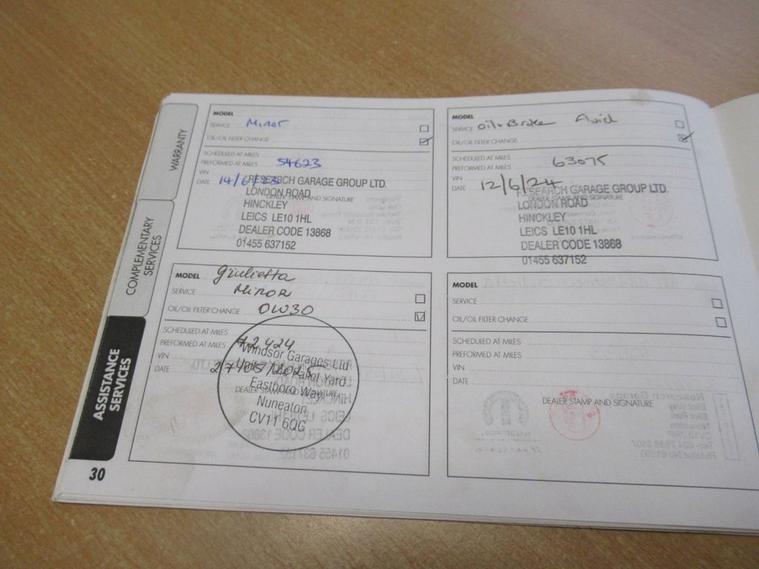 WARRANTY
COMPLEMENTARY
SERVICES
ASSISTANCE
SERVICES
30
MODEL
SERVICE Minor
OIL/OIL FILTER CHANGE
SCHEDULED AT MILES
PREFORMED AT MILES 54623
VIN
DATE 14/6/23
RESEARCH GARAGE GROUP LTD.
DEALER STAMP AND SIGNATURE
LONDON ROAD
HINCKLEY
LEICS LE10 1HL
DEALER CODE 13868
01455 637152
MODEL
SERVICE Oil + Brake Fluid
OIL/OIL FILTER CHANGE
SCHEDULED AT MILES
PREFORMED AT MILES 63075
VIN
DATE 12/6/24
RESEARCH GARAGE GROUP LTD.
DEALER STAMP AND SIGNATURE
LONDON ROAD
HINCKLEY
LEICS LE10 1HL
DEALER CODE 13868
01455 637152
MODEL Giulietta
SERVICE Minor
OIL/OIL FILTER CHANGE 0W30
SCHEDULED AT MILES
PREFORMED AT MILES 72424
VIN
DATE 27/05/2025
Windsor Garages Ltd
Yard
Eastboro Way
DEALER STAMP AND SIGNATURE
Nuneaton
CV11 6QG
MODEL
SERVICE
OIL/OIL FILTER CHANGE
SCHEDULED AT MILES
PREFORMED AT MILES
VIN
DATE
DEALER STAMP AND SIGNATURE